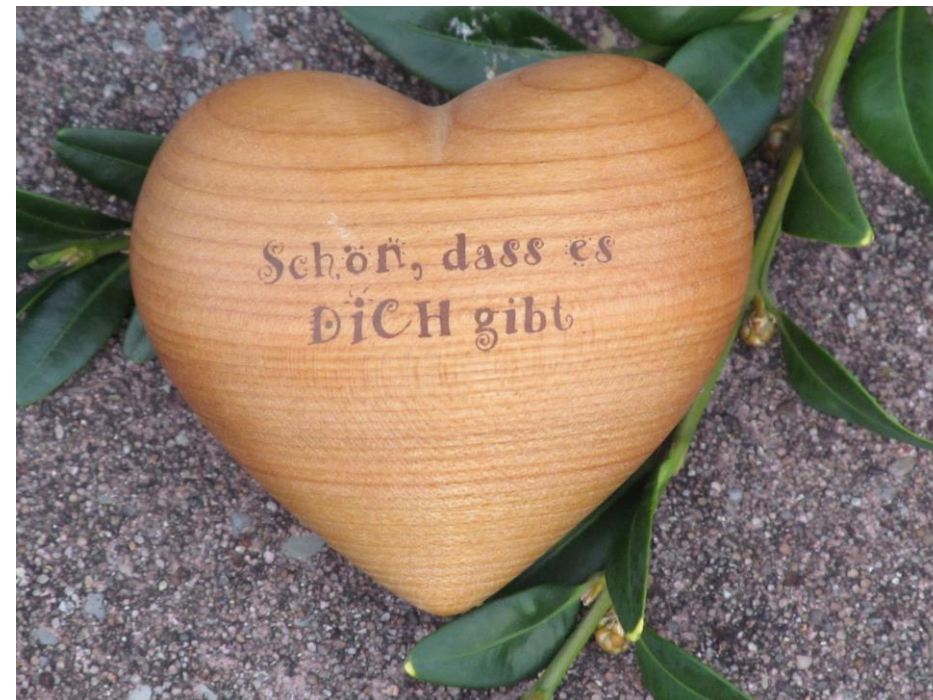 Schön, dass es
DiCH gibt